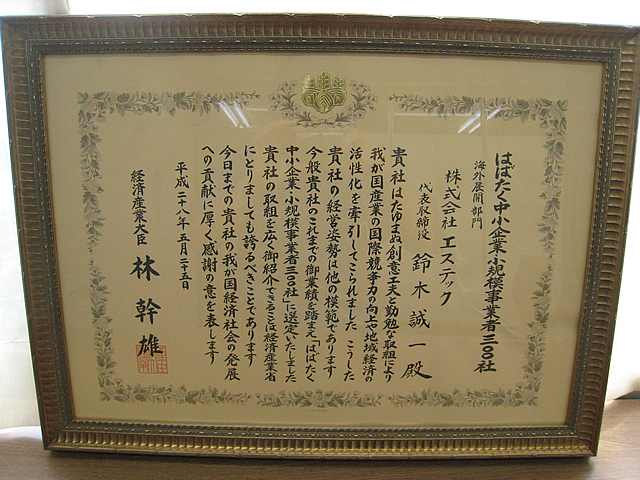 はばたく中小企業・小規模事業者三〇〇社
海外展開部門
株式会社 エステック
代表取締役 鈴木誠一殿
貴社はたゆまぬ創意工夫と勤勉な取組により
我が国産業の国際競争力の向上や地域経済の
活性化を牽引してこられました こうした
貴社の経営姿勢は他の模範であります
今般貴社のこれまでの御業績を踏まえ「はばたく
中小企業・小規模事業者三〇〇社」に選定いたしました
貴社の取組を広く御紹介できることは経済産業省
にとりましても誇るべきことであります
今日までの貴社の我が国経済社会の発展
への貢献に厚く感謝の意を表します
平成二十八年五月二十五日
経済産業大臣 林幹雄